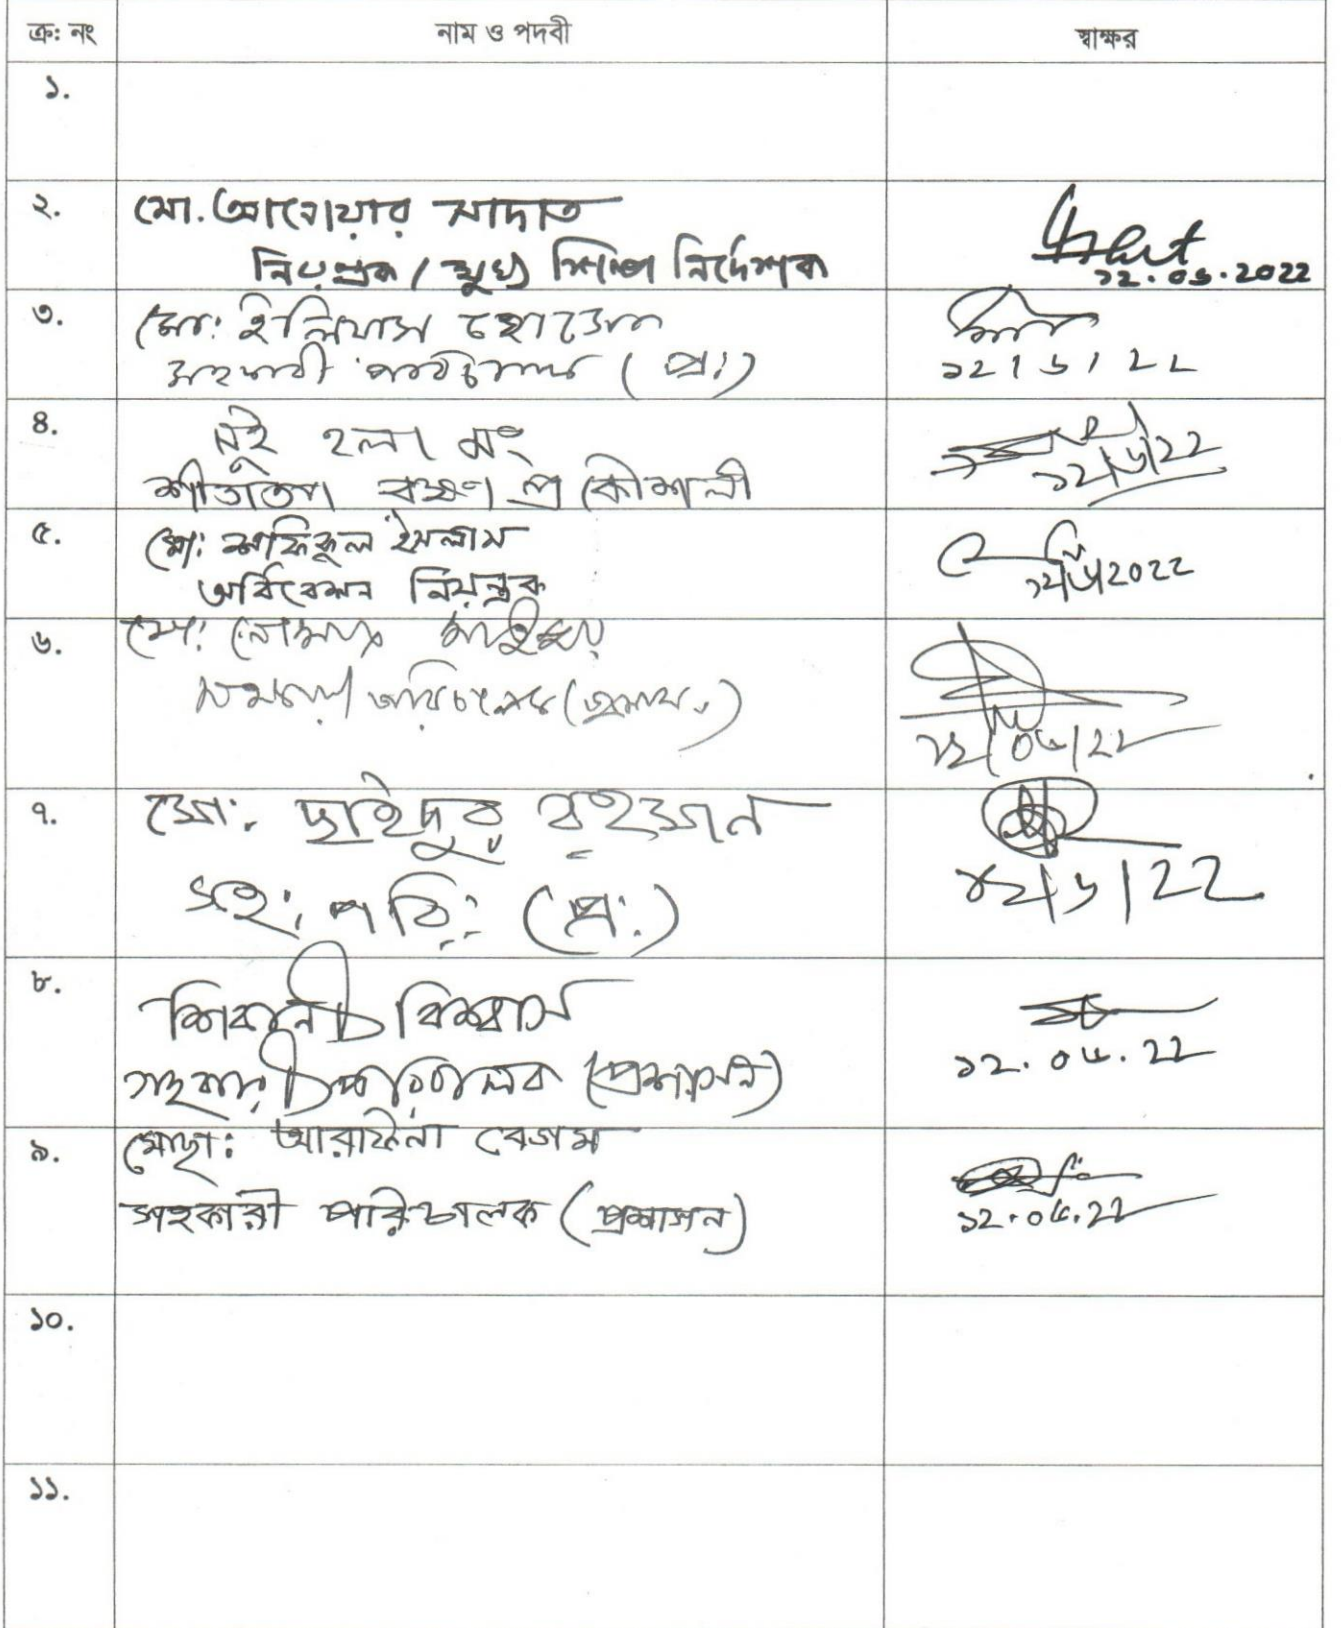 ক্র: নং নাম ও পদবী স্বাক্ষর
১.
২. মো. আনোয়ার সাদাত
নিয়ন্ত্রক / মুখ্য শিল্প নির্দেশক
১২.০৬.2022
৩. মো: ইলিয়াস হোসেন
সহকারী পরিচালক (প্র:)
১২/৬/২২
৪. নুই হলা মং
শীতাতপ প্রকৌশলী
১২/৬/২২
৫. মো: শফিকুল ইসলাম
অধিবেশন নিয়ন্ত্রক
১২/৬/২০২২
৬. মো:
১২/০৬/২২
৭. মো: ছাইদুর রহমান
সহ: পরি: (প্র:)
১২/৬/২২
৮. শিবানী বিশ্বাস
সহকারী পরিচালক (প্রশাসন)
১২.০৬.২২
৯. মোছা: বেগম
সহকারী পরিচালক (প্রশাসন)
১২.০৬.২২
১০.
১১.